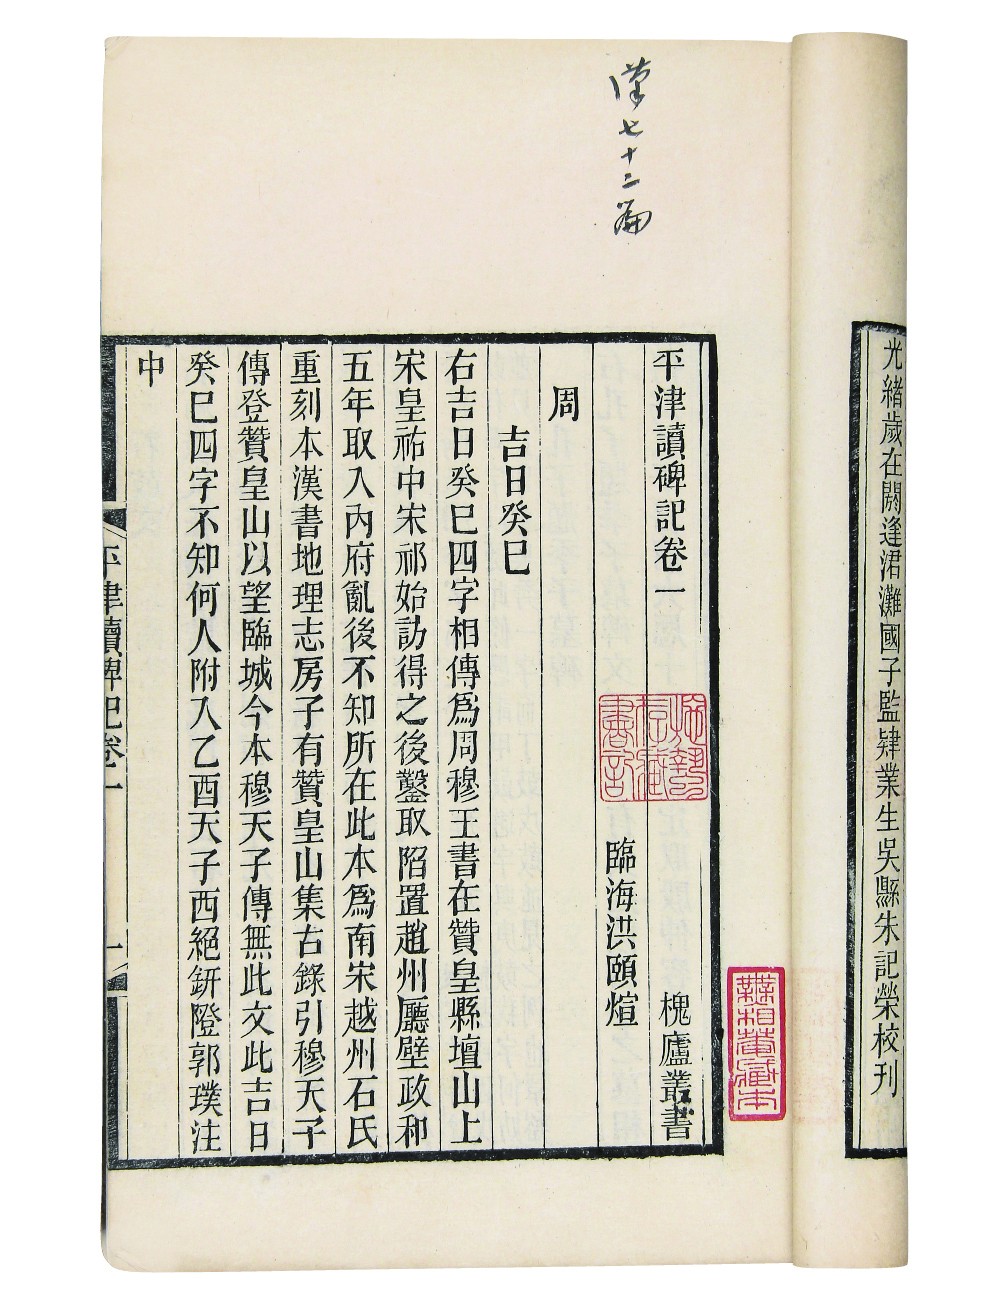 光緒歲在閼逢涒灘國子監肄業生吳縣朱記榮校刊
漢七十二篇
平津讀碑記卷一 槐廬叢書
臨海洪頤煊
周
吉日癸巳
右吉日癸巳四字相傳爲周穆王書在贊皇縣壇山上
宋皇祐中宋祁始訪得之後鑿取陷置趙州廳壁政和
五年取入內府亂後不知所在此本爲南宋越州石氏
重刻本漢書地理志房子有贊皇山集古錄引穆天子
傳登贊皇山以望臨城今本穆天子傳無此文此吉日
癸巳四字不知何人附入乙酉天子西絕鈃隥郭璞注
中
平津讀碑記卷一 一